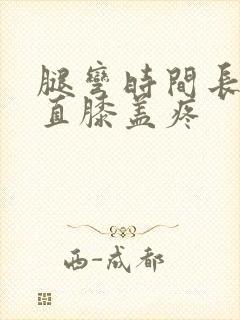 腿彎時間長
直膝盖疼
西-成都